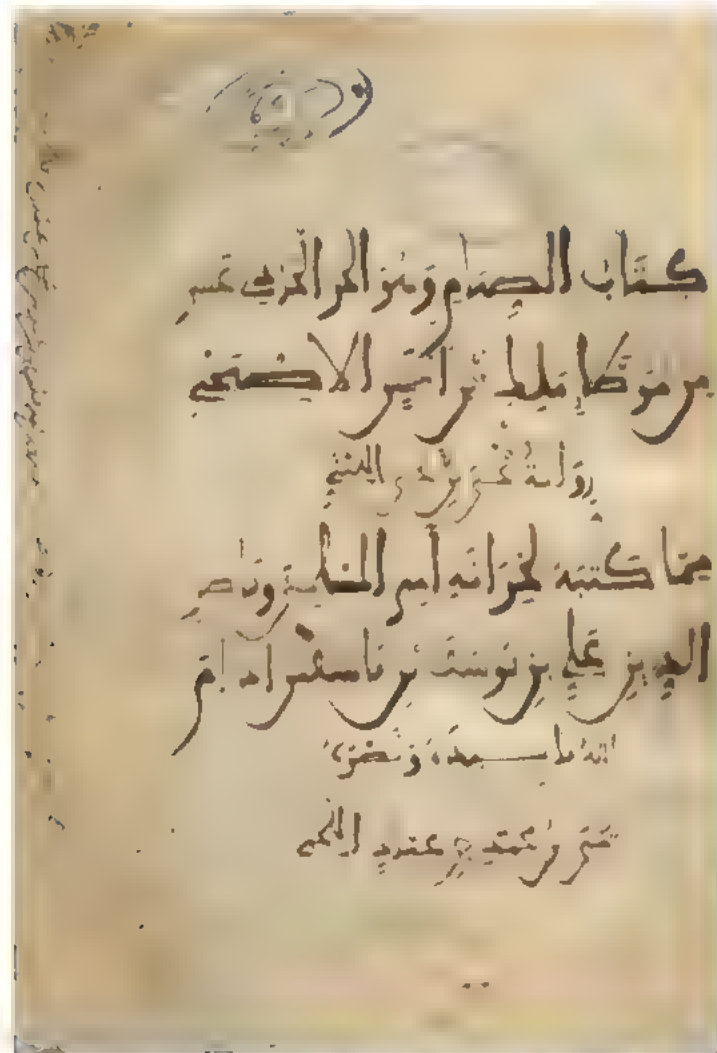 كتاب الصيام وهو الجز الحزى عشر
من موطأ ملك بن أنس الأصبحي
رواية يحيى بن يحيى الليثي
مما كتبه لخزانه أمير المسلمين وناصر
الدين علي بن يوسف بن تاسفين ادام
الله تاييده ونصره
يحيى بن محمد بن عباد اللخمي